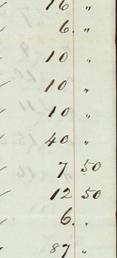 16 "
6. "
10 "
10 "
10 "
40 "
7 50
12 50
6. "
87 "